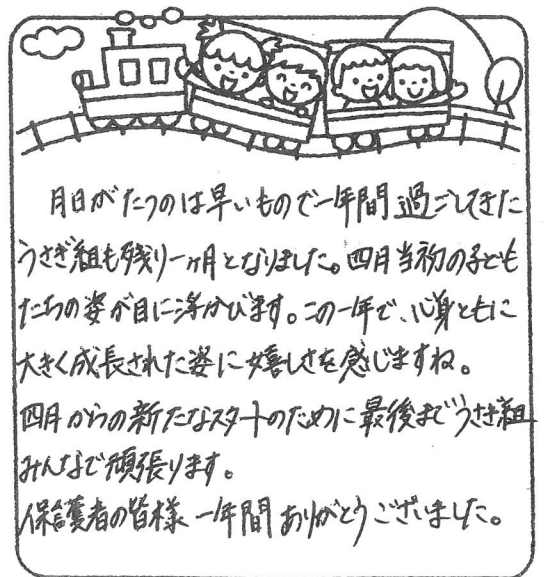 月日がたつのは早いもので一年間過ごしてきた
うさぎ組も残り一ヶ月となりました。四月当初の子ども
たちの姿が目に浮かびます。この一年で、心身ともに
大きく成長された姿に嬉しさを感じますね。
四月からの新たなスタートのために最後までうさぎ組
みんなで頑張ります。
保護者の皆様、一年間ありがとうございました。